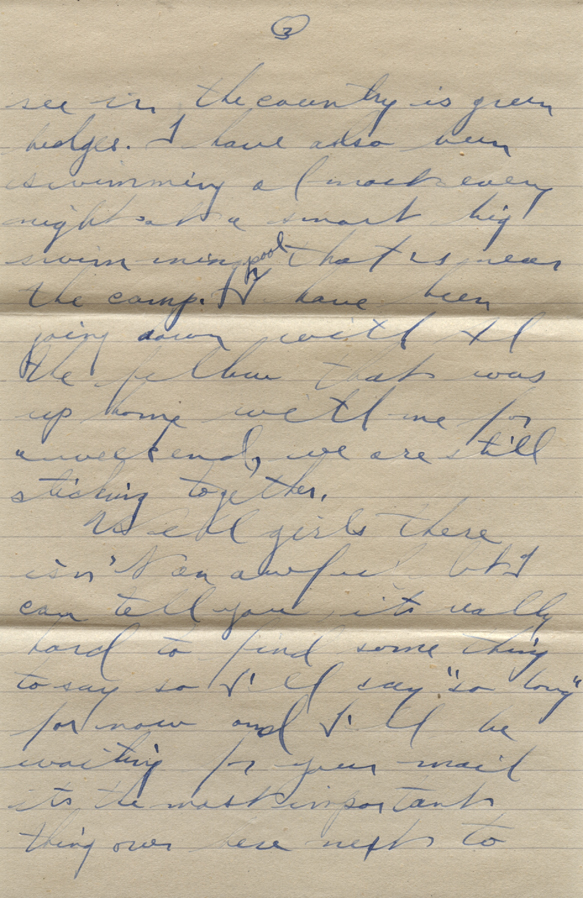 3
see in the country is green
hedges. I have also been
swimming almost every
night at a smart big
swimming pool that is near
the camp. I have been
going down with Al
the fellow that was
up home with me for
a weekend, we are still
sticking together.
Well girls there
isn't an awful lot I
can tell you its really
hard to find some thing
to say so I'll say "so long"
for now and I'll be
waiting for your mail
its the most important
thing over here next to